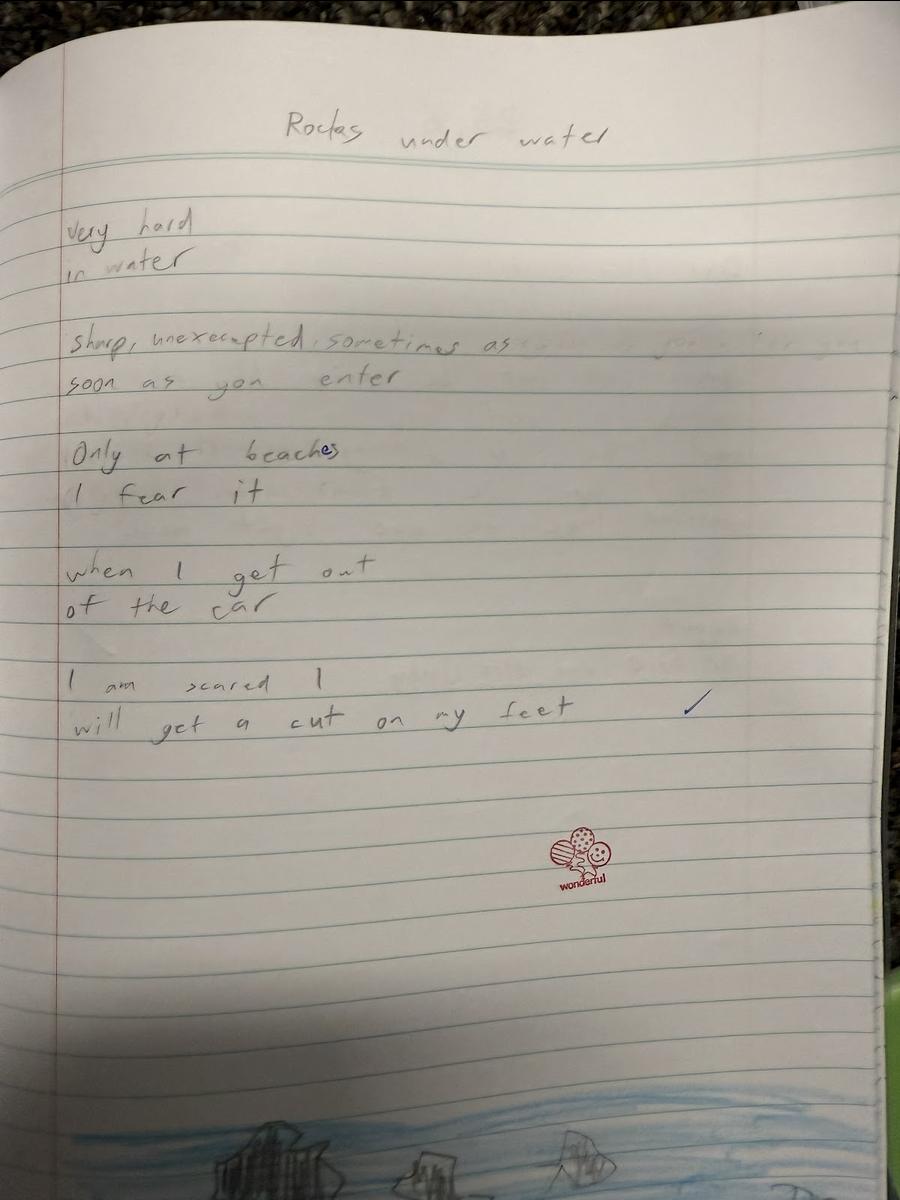 Rocks under water
very hard
in water
sharp, unexecupted, sometimes as
soon as you enter
Only at beaches
I fear it
when I get out
of the car
I am scared I
will get a cut on my feet
wonderful